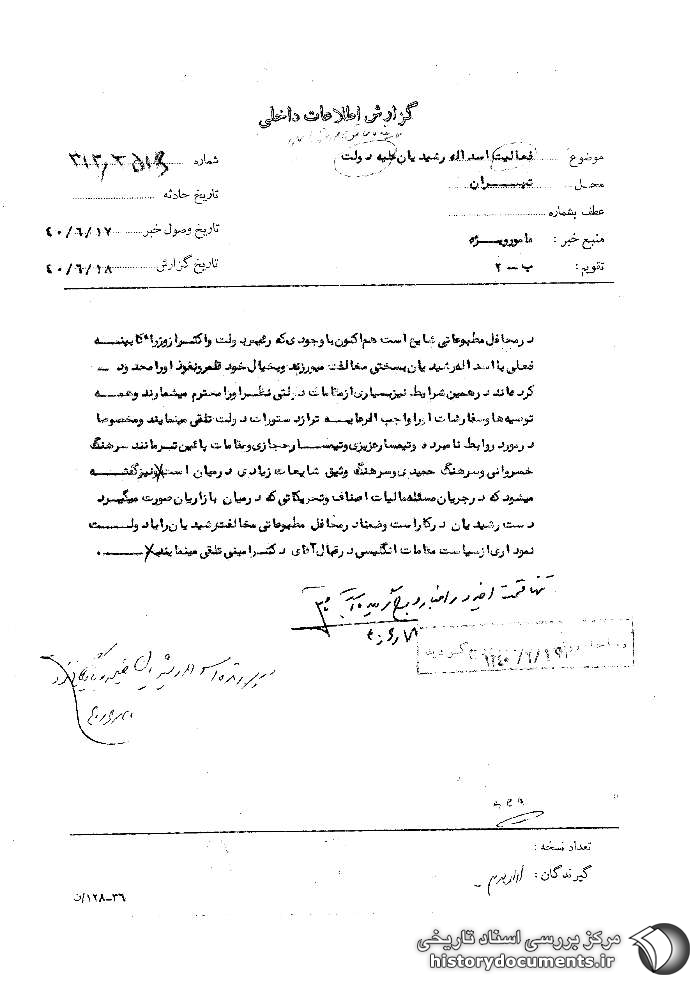 گزارش اطلاعات داخلی
موضوع فعالیت اسداله رشیدیان علیه دولت
شماره
محل تهران
تاریخ حادثه
عطف بشماره
تاریخ وصول خبر ۴۰/۶/۱۷
منبع خبر : مامور ویژه
تاریخ گزارش ۴۰/۶/۱۸
تقویم : ب - ۲
در محافل مطبوعاتی شایع است هم اکنون با وجودی که رهبر دولت و اکثر از وزراء کابینه
فعلی با اسداله رشیدیان بسختی مخالفت میورزند و بخیال خود قلمرو نفوذ او را محدود
کرده اند در همین شرایط نیز بسیاری از مقامات دولتی نظر او را محترم میشمارند و همه
توصیه ها و سفارشات او را واجب الرعایه تر از دستورات دولت تلقی مینمایند و مخصوصا
در مورد روابط نامبرده و تیمسار عزیزی و تیمسار حجازی و مقامات پائین تر مانند سرهنگ
خسروانی و سرهنگ حمیدی و سرهنگ وثیق شایعات زیادی در میان است و نیز گفته
میشود که در جریان مسئله مالیات اصناف و تحریکاتی که در میان بازاریان صورت میگیرد
دست رشیدیان در کار است و ضمنا در محافل مطبوعاتی مخالفت رشیدیان را با دولت
نموداری از سیاست مقامات انگلیسی در قبال آقای دکتر امینی تلقی مینمایند .
تنها قسمت اخیر در اخبار درج گردید
۱۳۴۰/۶/۱۹
تعداد نسخه :
گیرندگان : اداره سوم -
۳۶-۱۲۸/ن
مرکز بررسی اسناد تاریخی
historydocuments.ir